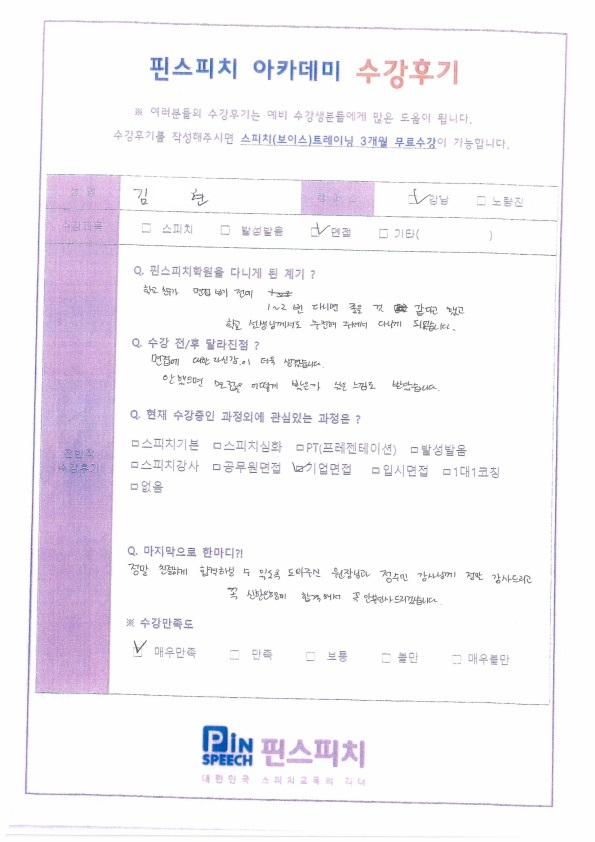 핀스피치 아카데미 수강후기
※ 여러분들의 수강후기는 예비 수강생분들에게 많은 도움이 됩니다.
수강후기를 작성해주시면 스피치(보이스)트레이닝 3개월 무료수강이 가능합니다.
성 명 김 현 ☑ 강남 □ 노량진
수강과목 □ 스피치 □ 발성발음 ☑ 면접 □ 기타( )
Q. 핀스피치학원을 다니게 된 계기 ?
학교 친구가 면접 보기 전에
1~2번 다니면 좋을 것 같다고 했고
학교 선생님께서도 추천해 주셔서 다니게 되었습니다.
Q. 수강 전/후 달라진점 ?
면접에 대한 자신감이 더욱 생겼습니다.
안했으면 면접을 어떻게 봤을까 싶은 느낌도 받았습니다.
Q. 현재 수강중인 과정외에 관심있는 과정은 ?
□ 스피치기본 □ 스피치심화 □ PT(프레젠테이션) □ 발성발음
전반적
수강후기
□ 스피치강사 □ 공무원면접 ☑ 기업면접 □ 입시면접 □ 1대1코칭
□ 없음
Q. 마지막으로 한마디?!
정말 친절하게 합격하실 수 있도록 도와주신 원장님과 정수민 강사님께 정말 감사드리고
꼭 신한은행에 합격해서 꼭 안부인사드리겠습니다.
※ 수강만족도
☑ 매우만족 □ 만족 □ 보통 □ 불만 □ 매우불만
PiN
SPEECH 핀스피치
대한민국 스피치교육의 리더